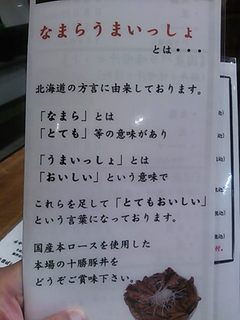 なまらうまいっしょ
とは・・・
北海道の方言に由来しております。
「なまら」とは
「とても」等の意味があり
「うまいっしょ」とは
「おいしい」という意味で
これらを足して「とてもおいしい」
という言葉になっております。
国産本ロースを使用した
本場の十勝豚丼を
どうぞご賞味下さい。